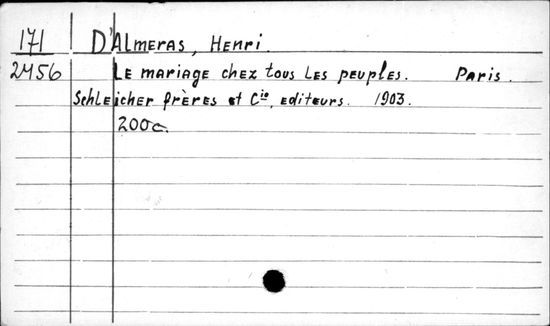 171 D'Almeras, Henri.
2456 Le mariage chez tous les peuples. Paris.
Schleicher frères et Cie, editeurs. 1903.
200c.